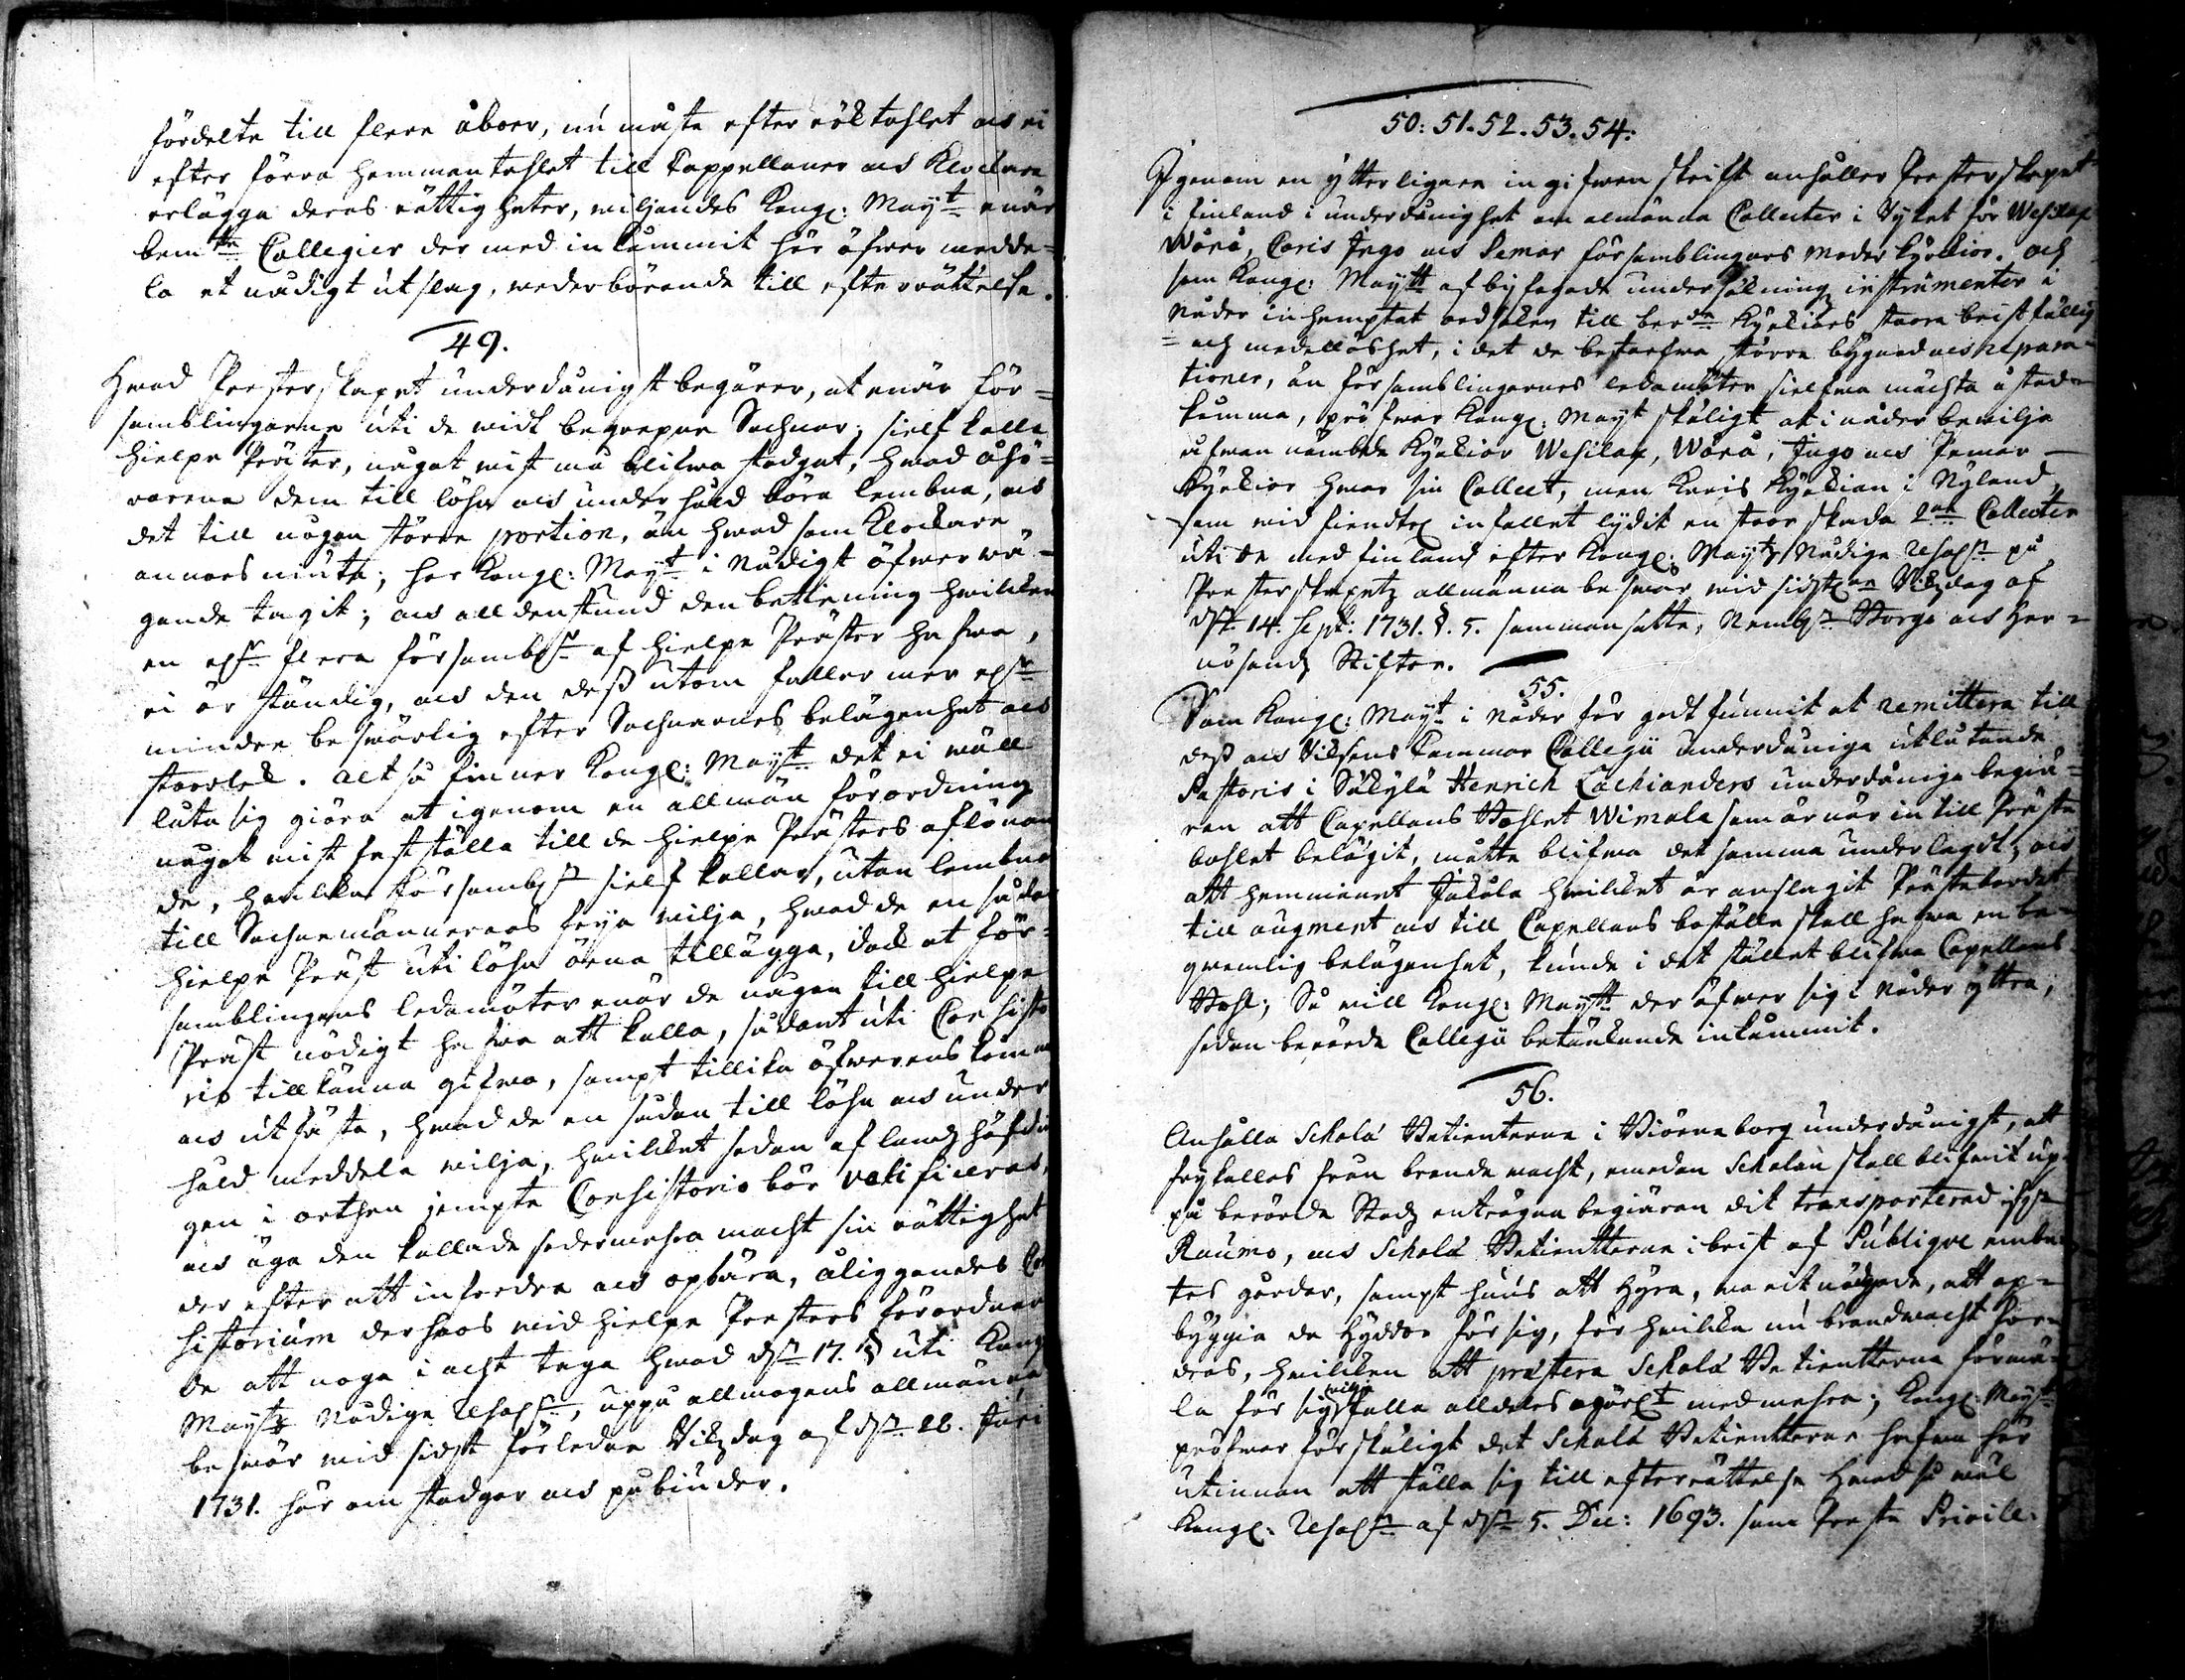 fördelte till flere åboer, nú måste efter röktahlet och ei
efter förra hemmantahlet till Cappellaner och Klockare
erlägga deras rättigheter, viljandes Kongl: Mayt enär
bemte Collegier der med inkommit här öfwer medde-
la et nådigt utslag, wederbörande till efterrättelse.
49.
Hwad Presterskapet underdånigst begärer, at enär för-
samblingarne uti de widt begrepne Sochnar, sielf kalla
hielpe Präster, något wist må blifwa stadgat, hwad åhö-
rarena dem till löhn och underhåld böra lembna, och
det till någon större portion, än hwad som Klockare
annors niuta; har Kongl: Mayt i Nådigt öfwerwä-
gande tagit; och alldenstund den bettiening hwilken
en eller flere församblr af hielpe Präster hafwa,
ei är ständig, och den dess utom faller mer eller
mindre beswärlig efter Sochnarnes belägenhet och
storlek. altså finner Kongl: Mayt det ei wäll
låta sig giöra at igenom en allmän förordning
något wist fastställa till de hielpe Prästers aflönan
de, hwilka församblr sielf kallar, utan lembnar
till Sochnemännernas frya wilja, hwad de en sådan
hielpe Präst uti löhn ärna tillägga, dock at för-
samblingens ledamöter enär de någon till hielpe
Präst nödigt hafwa att kalla, sådant uti Consisto
rio tillkänna gifwa, sampt tillika öfwerenskomma
och utsätta, hwad de en sådan till löhn och under
håld meddela wilja, hwilket sedan af landzhöfdin
gen i orthen jempte Consistorio bör ratificeras,
och äga den kallade sedermehra macht sin rättighet
der efter att infordra och opbära, åliggandes Con
sistorium derhoos wid hielpe Presters förordnan
de att noga i acht taga hwad dhn 17. § uti Kongl
Maytz Nådige Resoln, uppå allmogens allmänna
beswär wid sidst förledne Rikzdag af dhn 28. Juni
1731. här om stadgar och påbiuder.
50: 51. 52. 53. 54:
Igenom en ytterligare ingifwen skrift anhåller Presterskapet
i Finland i underdånighet om almänna Collecter i Ryket för Wesilax
Wörå, Caris Ingo och Pemar församblingars moderkyrkior. och
som Kongl: Maytt af bifogade undersökning instrumenter i
Nåder inhemptat orsaken till berde Kyrkiors stora bristfällig
= och medellöshet, i det de betarfwa större bygnad och repara-
tioner, än församblingarnes ledamöter sielfwa mächta åstad-
komma, pröfwar Kongl: Mayt skäligt at i nåder bewilja
ofwan nämbde Kyrkior Wesilax, Wörå, Ingo och Pemar —
Kyrkior hwar sin Collect, men Karis Kyrkian i Nyland,
som wid fiendtl infallet lydit en stor skada 2ne Collecter
uti de med Finland efter Kongl: Maytz Nådige Resoln på
Presterskapetz allmänna beswär wid sidstle Rikzdag af
dhn 14. Sept: 1731. §. 5. sammansatte, Nembln Borgo och Her-
nösandz Stifter.
55.
Som Kongl: Mayt i Nåder för godt funnit at remittera till
dess och Riksens Cammar Collegii underdåniga utlåtande
Pastoris i Säkylä Henrich Cachianders underdåniga begiä-
ran att Capellans Bohlet Wimala som är när in till Präste
bohlet belägit, måtte blifwa det samma underlagdt, och
att hemmanet Jukola hwilket är anslagit Prästebordet
till augment och till Capellans boställe skall hafwa en be-
qwemlig belägenhet, kunde i det stället blifwa Capellans
Bohl; Så will Kongl: Maytt der öfwer sig i Nåder yttra,
sedan berörde Collegii betänkande inkommit.
56.
Anhålla Scholæ Betienterne i Biörneborg underdånigst, att
frykallas från brandwacht, emedan Scholan skall blifwit up-
på berörde Stadz enträgna begiäran dit transporterad ifrån
Raumo, och Scholæ Betientterne i brist af Publiqve embe-
tes gårdar, sampt huus att Hyra, wordit nödgade, att op-
byggia de Hyddor för sig, för hwilka nú brandwacht for-
dras, hwilken att præstera Scholæ Betientterne förme-
la för sig wilja falla alldeles ogörlt med mehra; Kongl: Maytt
pröfwar för skäligt det Scholæ Betientterne hafwa här
utinnan att ställa sig till efterrättelse hwad så wäl
Kongl: Resoln af dhn 5. Dec: 1693. som Preste Privile-